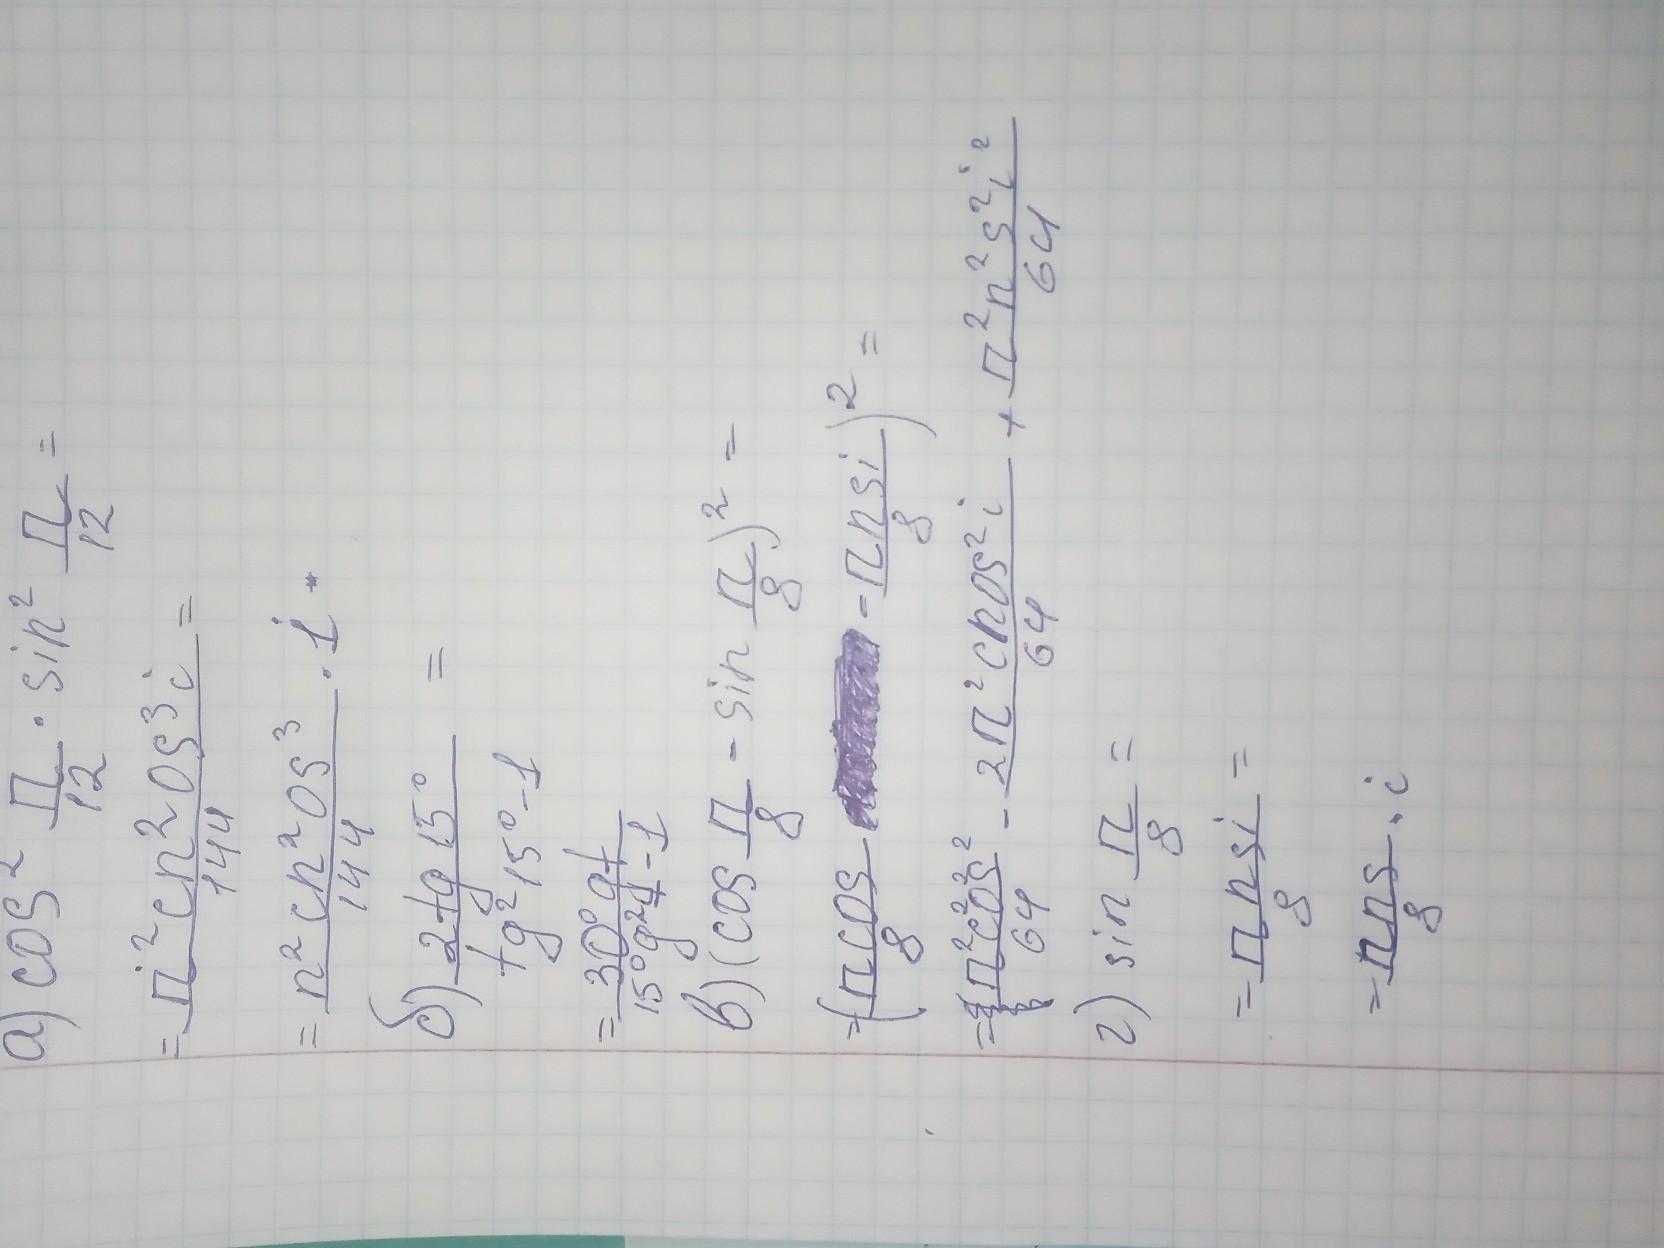 а) cos² П/12 · sin² П/12 =
= П² cn2os³i/144 =
= п² cn²os³/144 · i
б) 2tg15°/tg²15°-1 =
= 30°gt/15°g²t-1
в) (cos П/8 - sin П/8)² =
= (Пcos/8 - Пnsi/8)² =
= П²c²o²s²/64 - 2П²cnos²i/64 + П²n²s²i²/64
г) sin П/8 =
= Пnsi/8 =
= Пns/8 · i